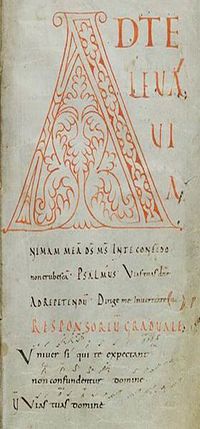 A DTE
LEUA
UI
A
NIMAM MEA DS MS INTE CONFIDO
non erubescā. PSALMUS Uias tuas dne
AD REPETENDŪ Dirige me inueritate tua
RESPONSORIŪ GRADUALE
Uniuersi qui te expectant
non confundentur domine
V Uias tuas domine